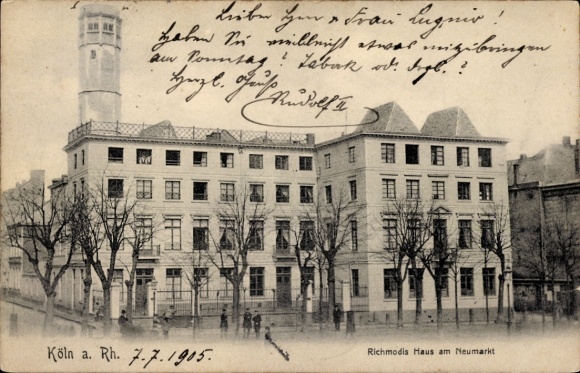 Lieber Herr & Frau Lugnir!
Haben Sie vielleicht etwas mitzubringen
am Sonntag? Taback od. dergl.?
Herzl. Gruß
Rudolf II
Köln a. Rh. 7.7.1905.
Richmodis Haus am Neumarkt